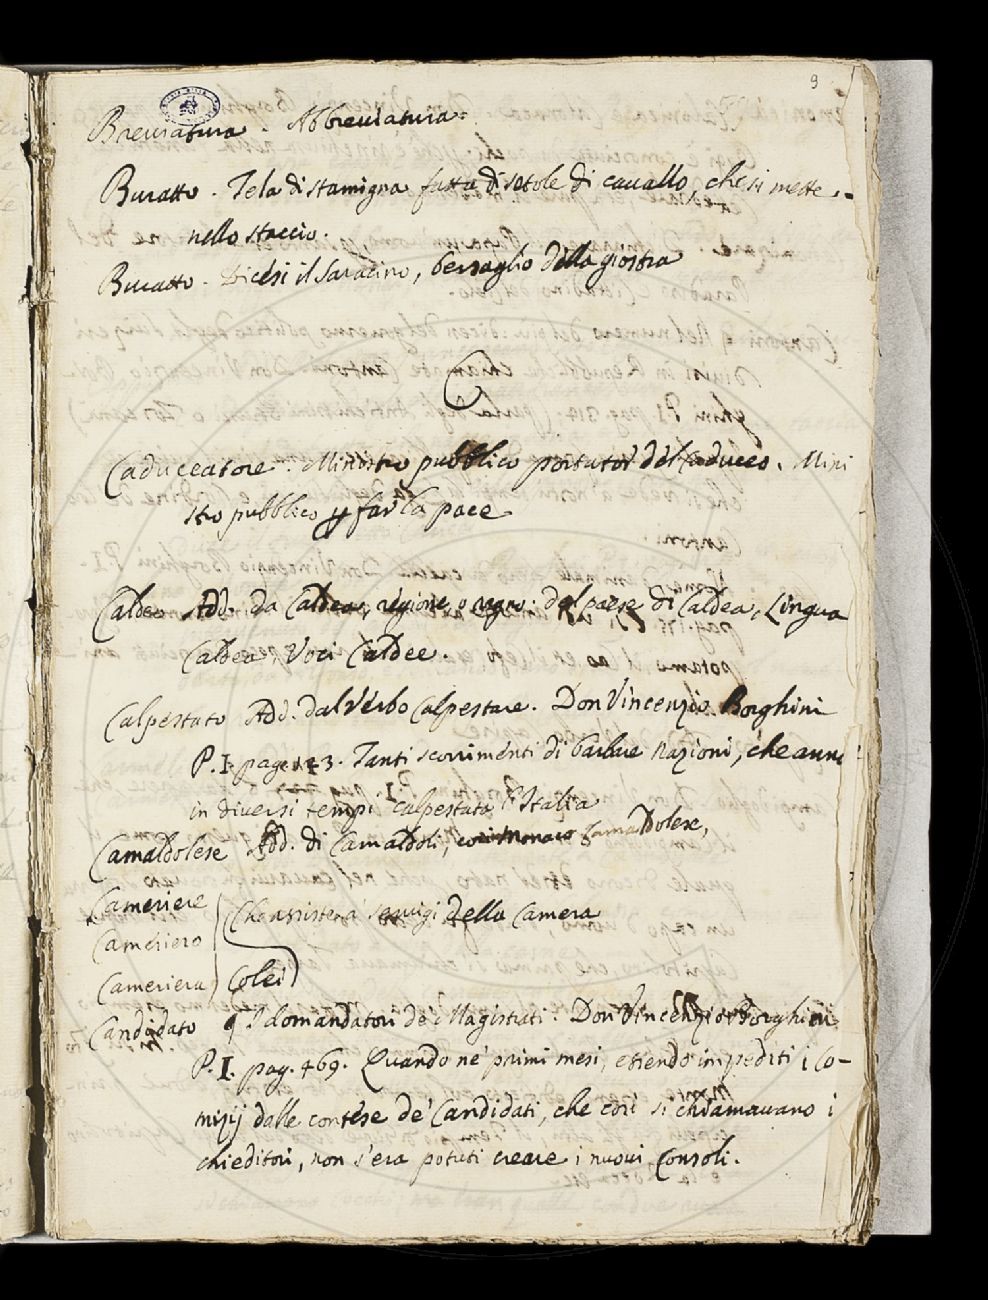 9
Breviatura. Abbreviatura.
Buratto. Tela di stamigna fatta di setole di cavallo, che si mette
nello staccio.
Buratto. Dicesi il Saracino, bersaglio della giostra
C
Caduceatore. Ministro pubblico portator del Caduceo. Mini
stro pubblico p far la pace
Caldeo Add. da Caldea, regione, o regno. del paese di Caldea, Lingua
Caldea, Voci Caldee.
Calpestato Add. dal Verbo Calpestare. Don Vincenzio Borghini
P. I. pag. 123. Tanti scorrimenti di barbare Nazioni, che anno
in diversi tempi calpestata l'Italia
Camaldolese Add. di Camaldoli, Camaldolese,
Cameriere
Cameriero
Che assiste a' servigi della Camera
Cameriera Colei
Candidato I domandatori de' Magistrati. Don Vincenzio Borghini
P. I. pag. 469. Quando ne' primi mesi, essendo impediti i Co-
mizij dalle contese de' Candidati, che così si chiamavano i
chieditori, non s'era potuti creare i nuovi Consoli.